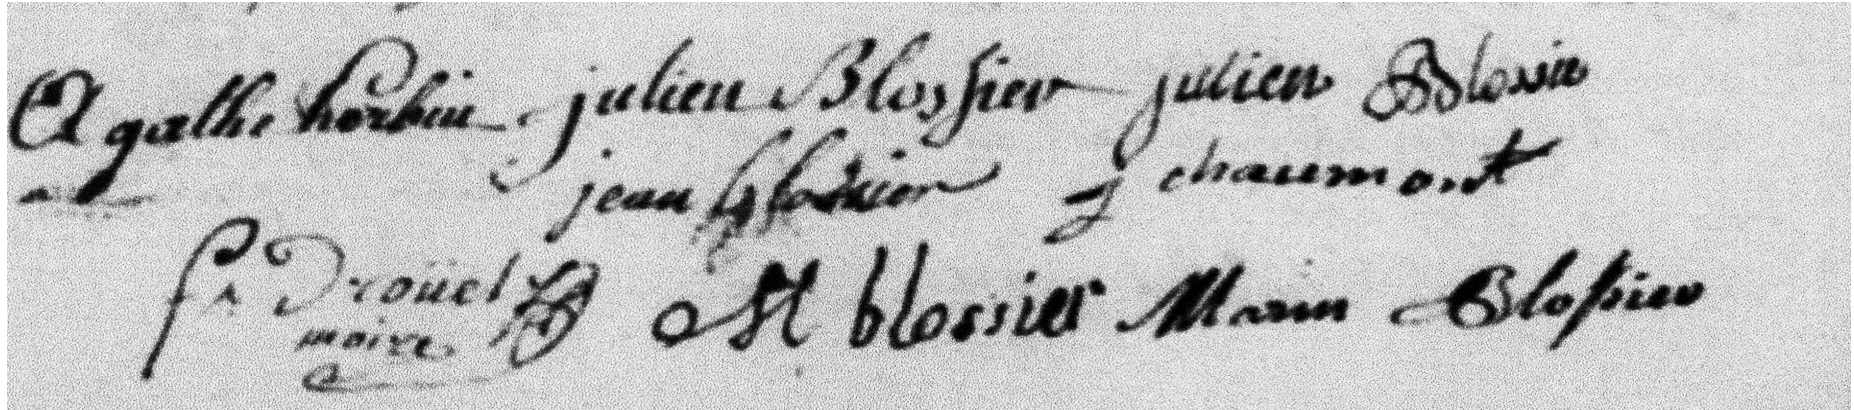 Agathe herbin julien Blossier julien Blossie
jean blossier j chaumont
fr Droüel M blossier Marin Blossier
maire